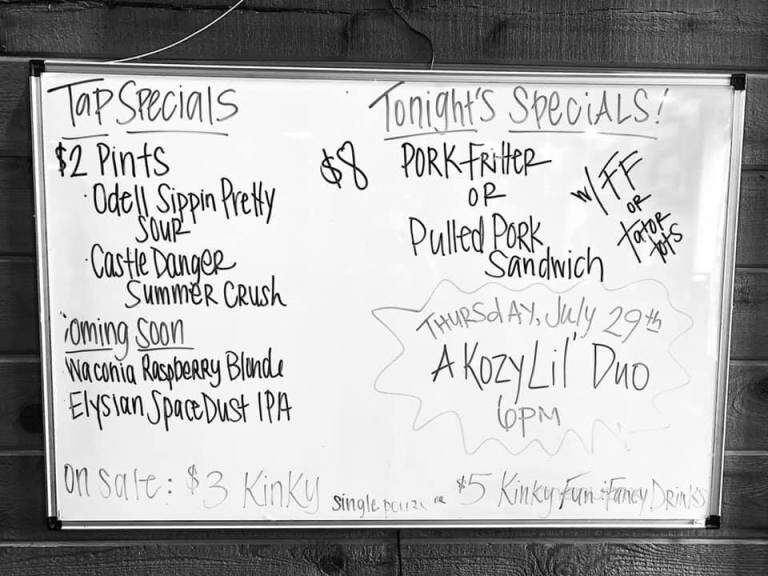 Tap Specials
$2 Pints
· Odell Sippin Pretty
Sour
· Castle Danger
Summer Crush
Coming Soon
Waconia Raspberry Blonde
Elysian Space Dust IPA
Tonight's Specials!
$8 Pork Fritter
OR
Pulled Pork
Sandwich
w/ FF
OR
tator
tots
Thursday, July 29th
A Kozy Lil' Duo
6PM
On Sale: $3 Kinky single OR $5 Kinky Fun : Fancy Drinks